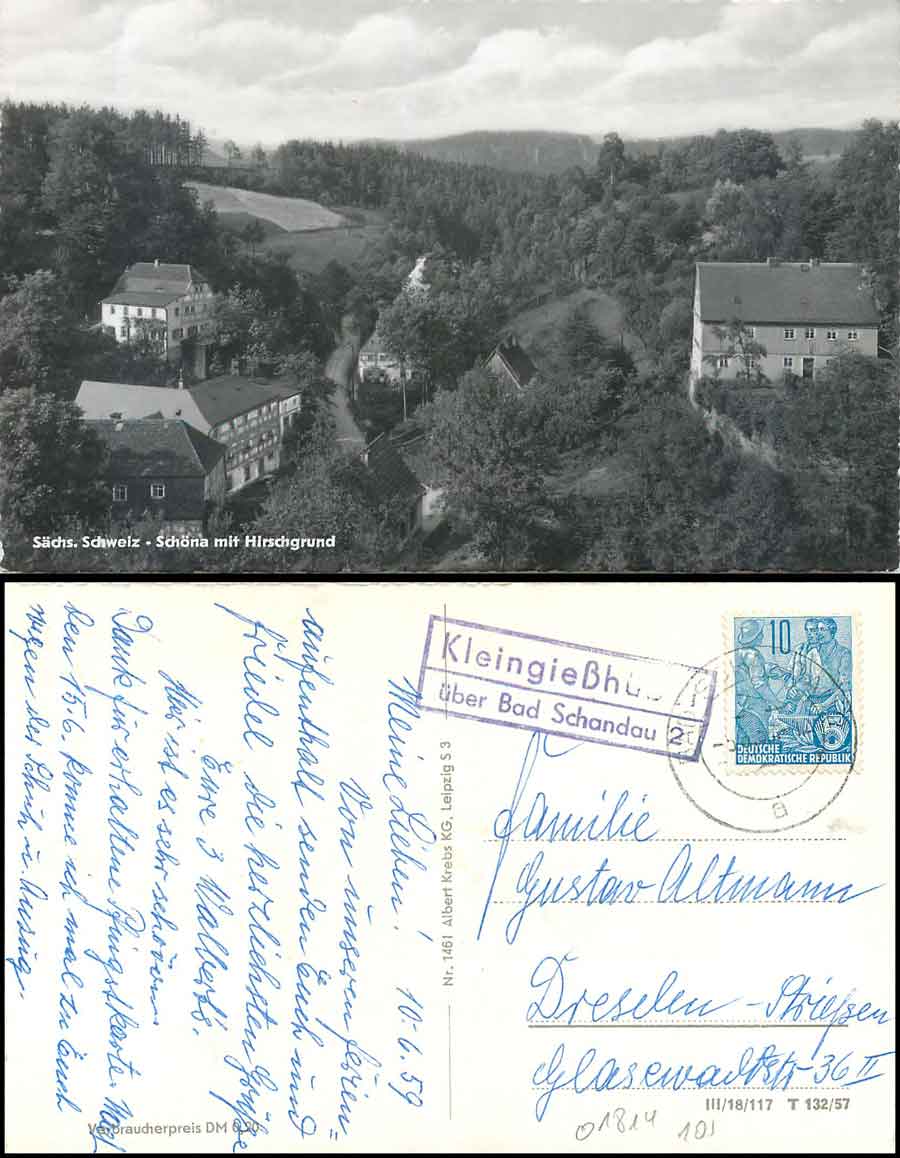 Sächs. Schweiz - Schöna mit Hirschgrund
Meine Lieben! 10.6.59
Von unseren ferien=
aufenthalt senden Euch und
friedel die herzlichsten Grüße
Eure 3 Walberts.
Hier ist es sehr schön.
Dank für erhaltene Pfingstkarte.
den 15.6. komme ich mal zu Euch
wegen der Schuh u. Anzug.
Nr. 1461 Albert Krebs KG, Leipzig S 3
Verbraucherpreis DM 0,20
Kleingießhü
über Bad Schandau 2
10
DEUTSCHE
DEMOKRATISCHE REPUBLIK
a
familie
Gustav Altmann
Dresden - Striesen
Glasewaldtstr. 36 II
III/18/117 T 132/57
01814
101